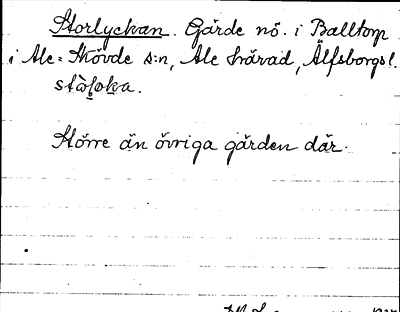 Storlyckan. Gärde nö. i Balltorp
i Ale-Skövde s:n, Ale härad, Älfsborgs l.
Större än övriga gärden där.